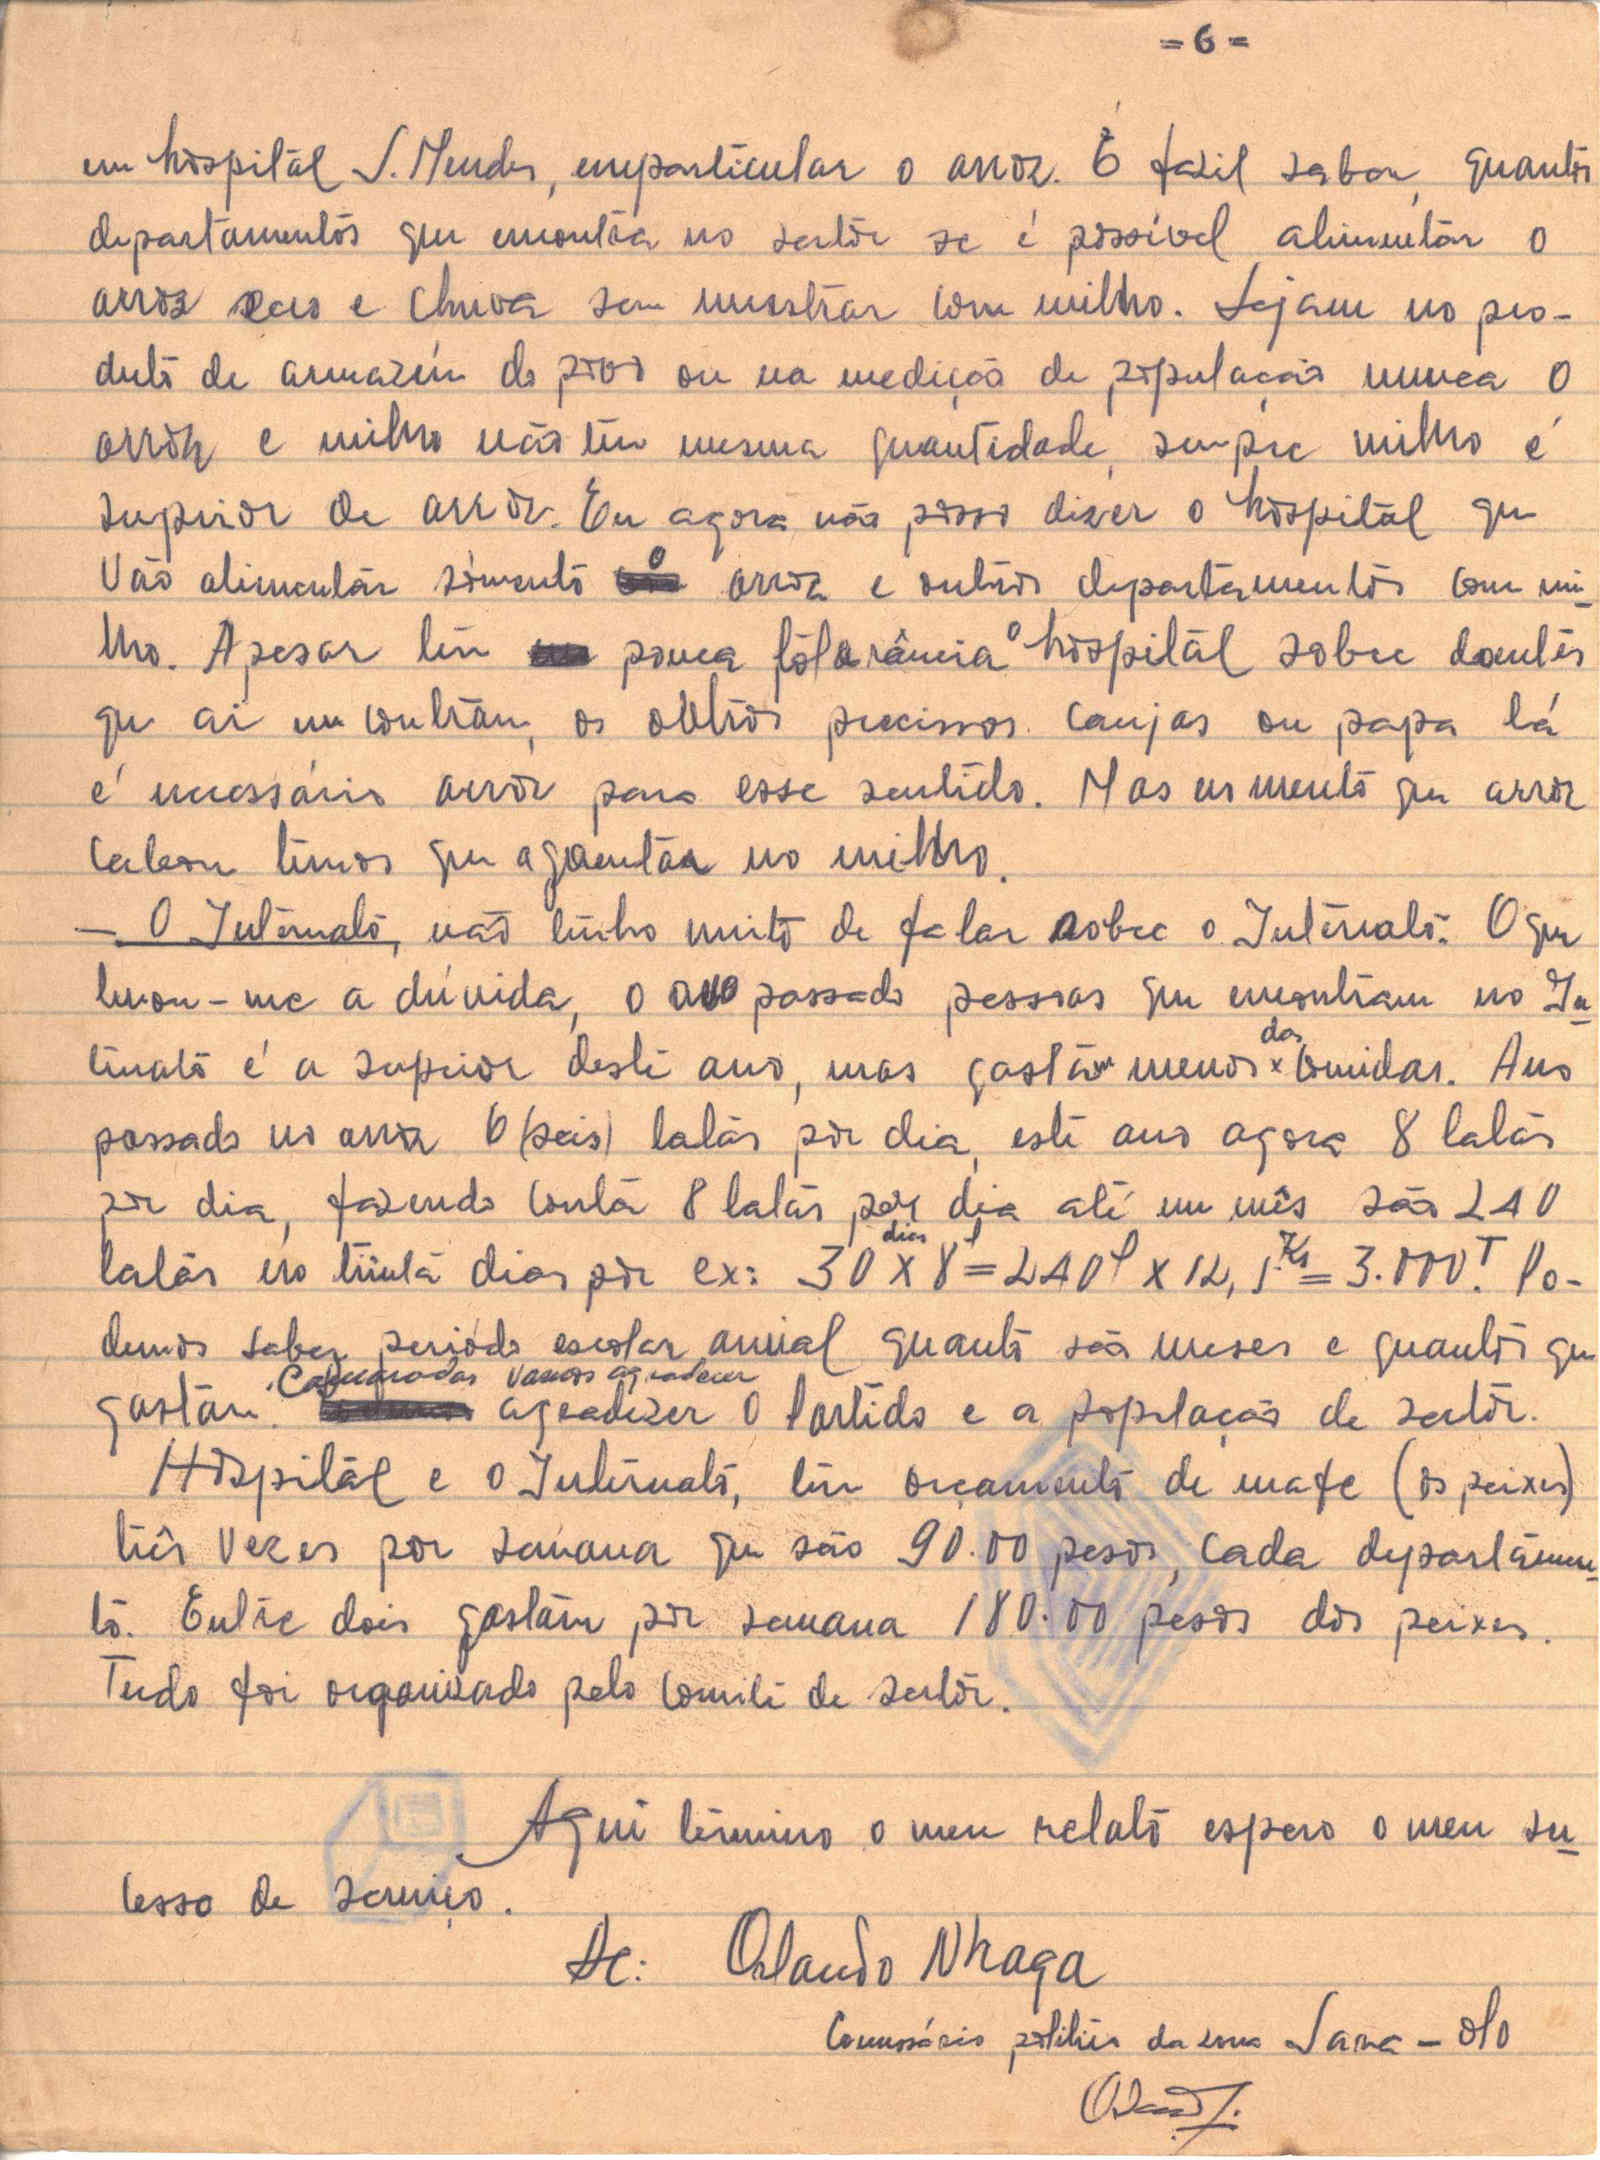 = 6 =
em hospitál S. Mendes, emparticular o arroz. É fazil saber, quantos
departamentos que emontra no sector se é possível alimentár o
arroz seco e chuva sem mostrar com milho. Sejam no pro-
duto de armazém do povo ou na medição de população nunca o
arroz e milho não têm mesma quantidade, sempre milho é
superior de arroz. Eu agora não posso dizer o hospitál que
Vão alimentár sómento o arroz e outros departamentos com mi-
lho. Apesar têm pouca tolarância o hospitál sobre doentes
que ai encontram, os outros precissos canjas ou papa lá
é necessário arroz para esse sentido. Mas momento que arroz
cabou temos que agoentáa no milho.
— O Internato, não tinho muito de falar sobre o Internato. O que
levou-me a dúvida, o ano passado pessoas que encontram no In-
ternato é a superior deste ano, mas gastám menos das comidas. Ano
passado no arroz 6 (seis) latas por dia, este ano agora 8 latas
por dia, fazendo conta 8 latas por dia até um mês são 240
latas no trinta dias por ex: 30 dias x 8 l = 240 l x 12,5 Ks = 3.000 T. Po-
demos saber periodo escolar anual quanto são meses e quantos que
gastám. Camaradas vamos agradecer agradezer o Partido e a população de sector.
Hospitál e o Internato, têm orçamento de mafe (os peixes)
três Vezes por semana que são 90.00 pesos, cada departámen-
to. Entre dois gastám por semana 180.00 pesos dos peixes.
Tudo foi organizado pelo comité de sector.
Aqui término o meu relato espero o meu su-
cesso de serviço.
De: Orlando Nhaga
Comossário politico da zona Sara - olo